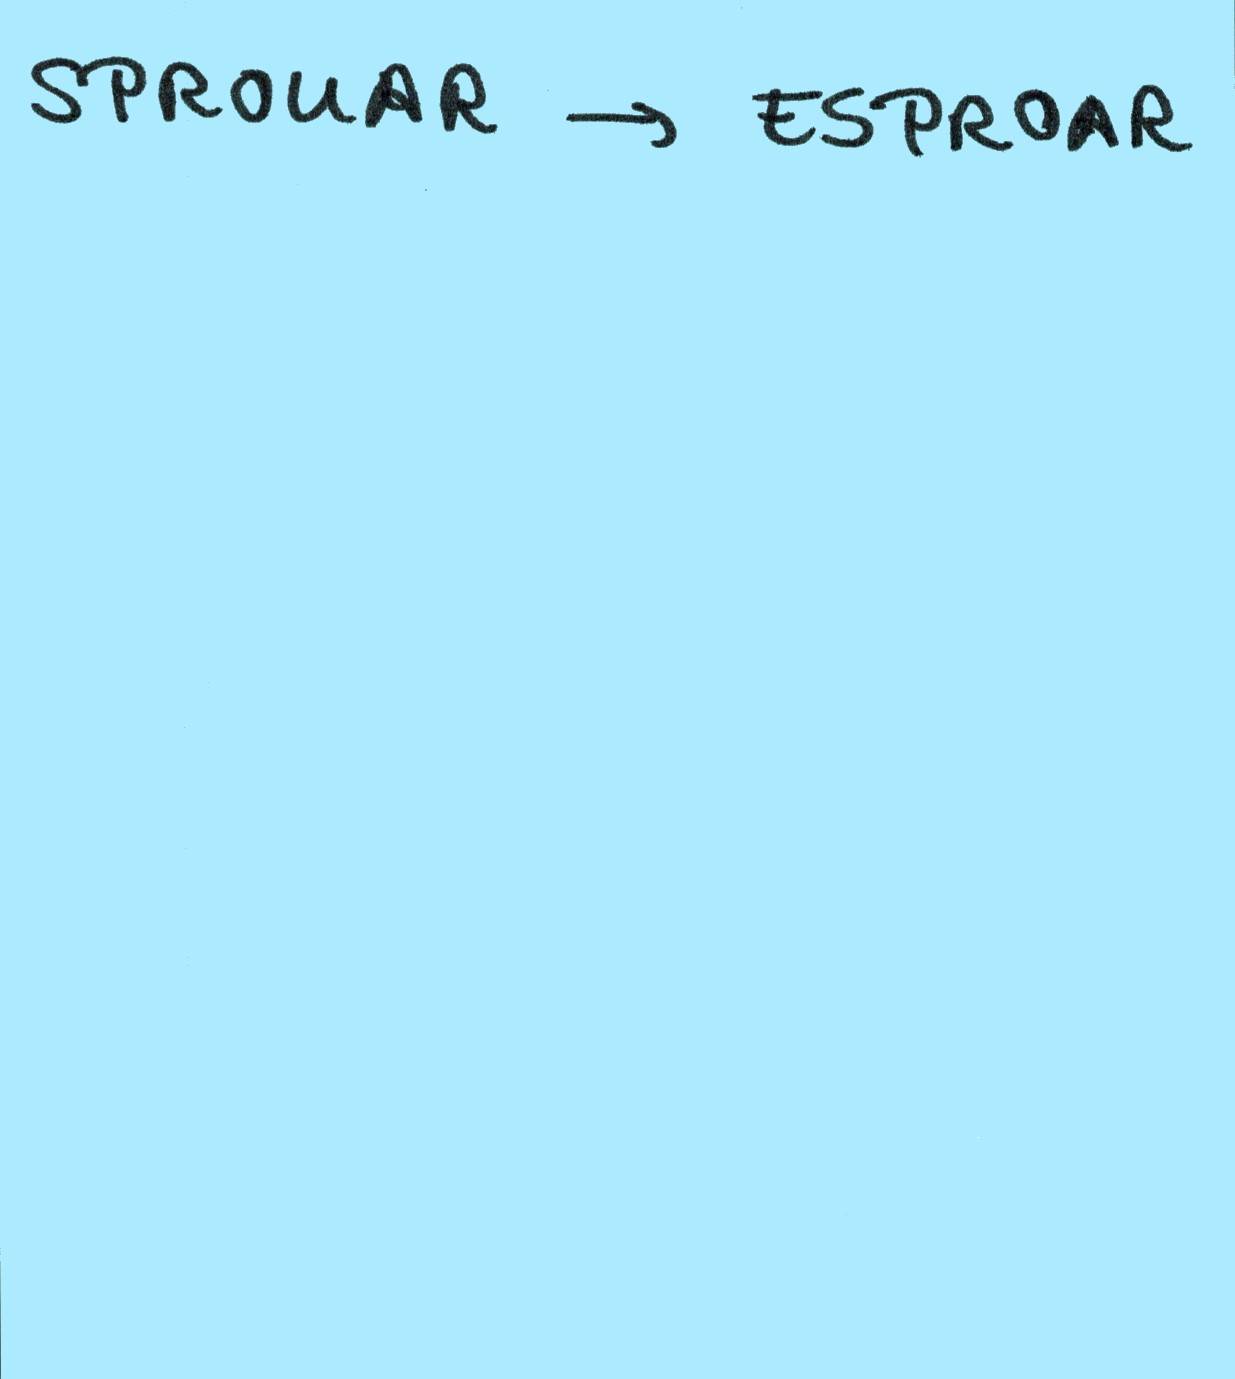 SPROUAR → ESPROAR